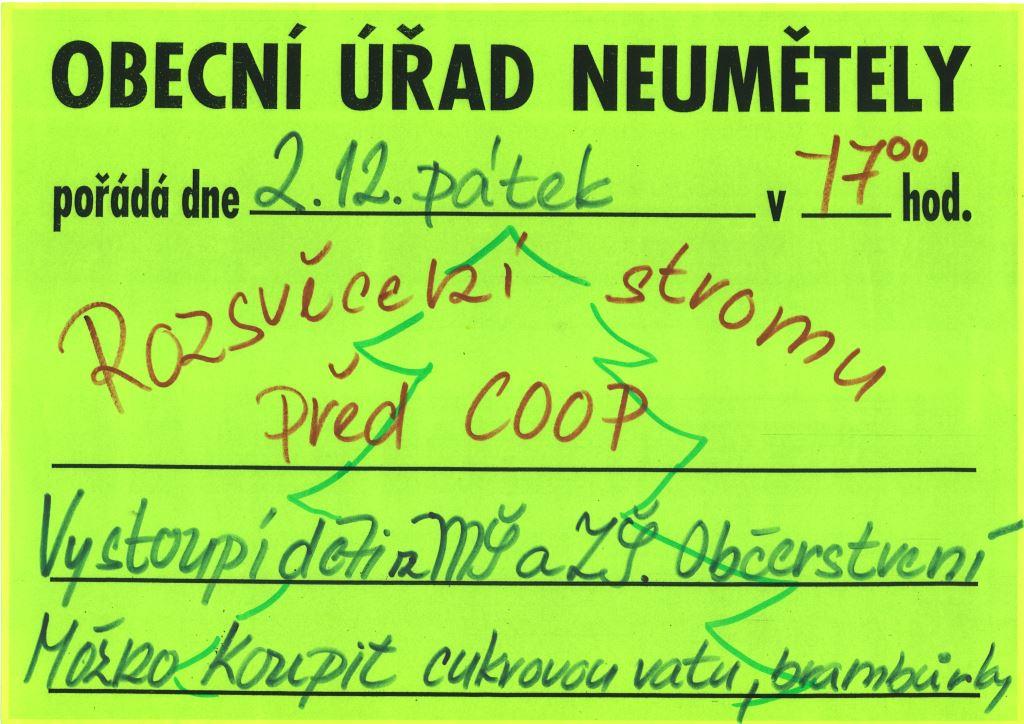 OBECNÍ ÚŘAD NEUMĚTELY
pořádá dne 2.12. pátek v 17⁰⁰ hod.
Rozsvícení stromu
před COOP
Vystoupí děti z MŠ a ZŠ. Občerstvení
Možno Koupit cukrovou vatu, brambůrky